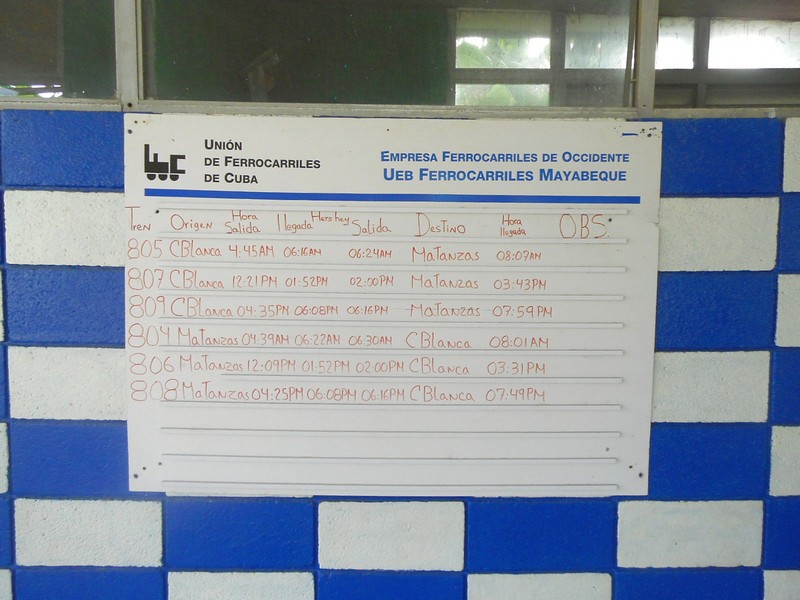 UNIÓN
DE FERROCARRILES
DE CUBA
EMPRESA FERROCARRILES DE OCCIDENTE
UEB FERROCARRILES MAYABEQUE
Tren Origen Hora Salida llegada Hershey Salida Destino Hora llegada OBS.
805 CBlanca 4:45AM 06:16AM 06:24AM Matanzas 08:07AM
807 CBlanca 12:21PM 01:52PM 02:00PM Matanzas 03:43PM
809 CBlanca 04:35PM 06:08PM 06:16PM Matanzas 07:59PM
804 Matanzas 04:39AM 06:22AM 06:30AM CBlanca 08:01AM
806 Matanzas 12:09PM 01:52PM 02:00PM CBlanca 03:31PM
808 Matanzas 04:25PM 06:08PM 06:16PM CBlanca 07:49PM